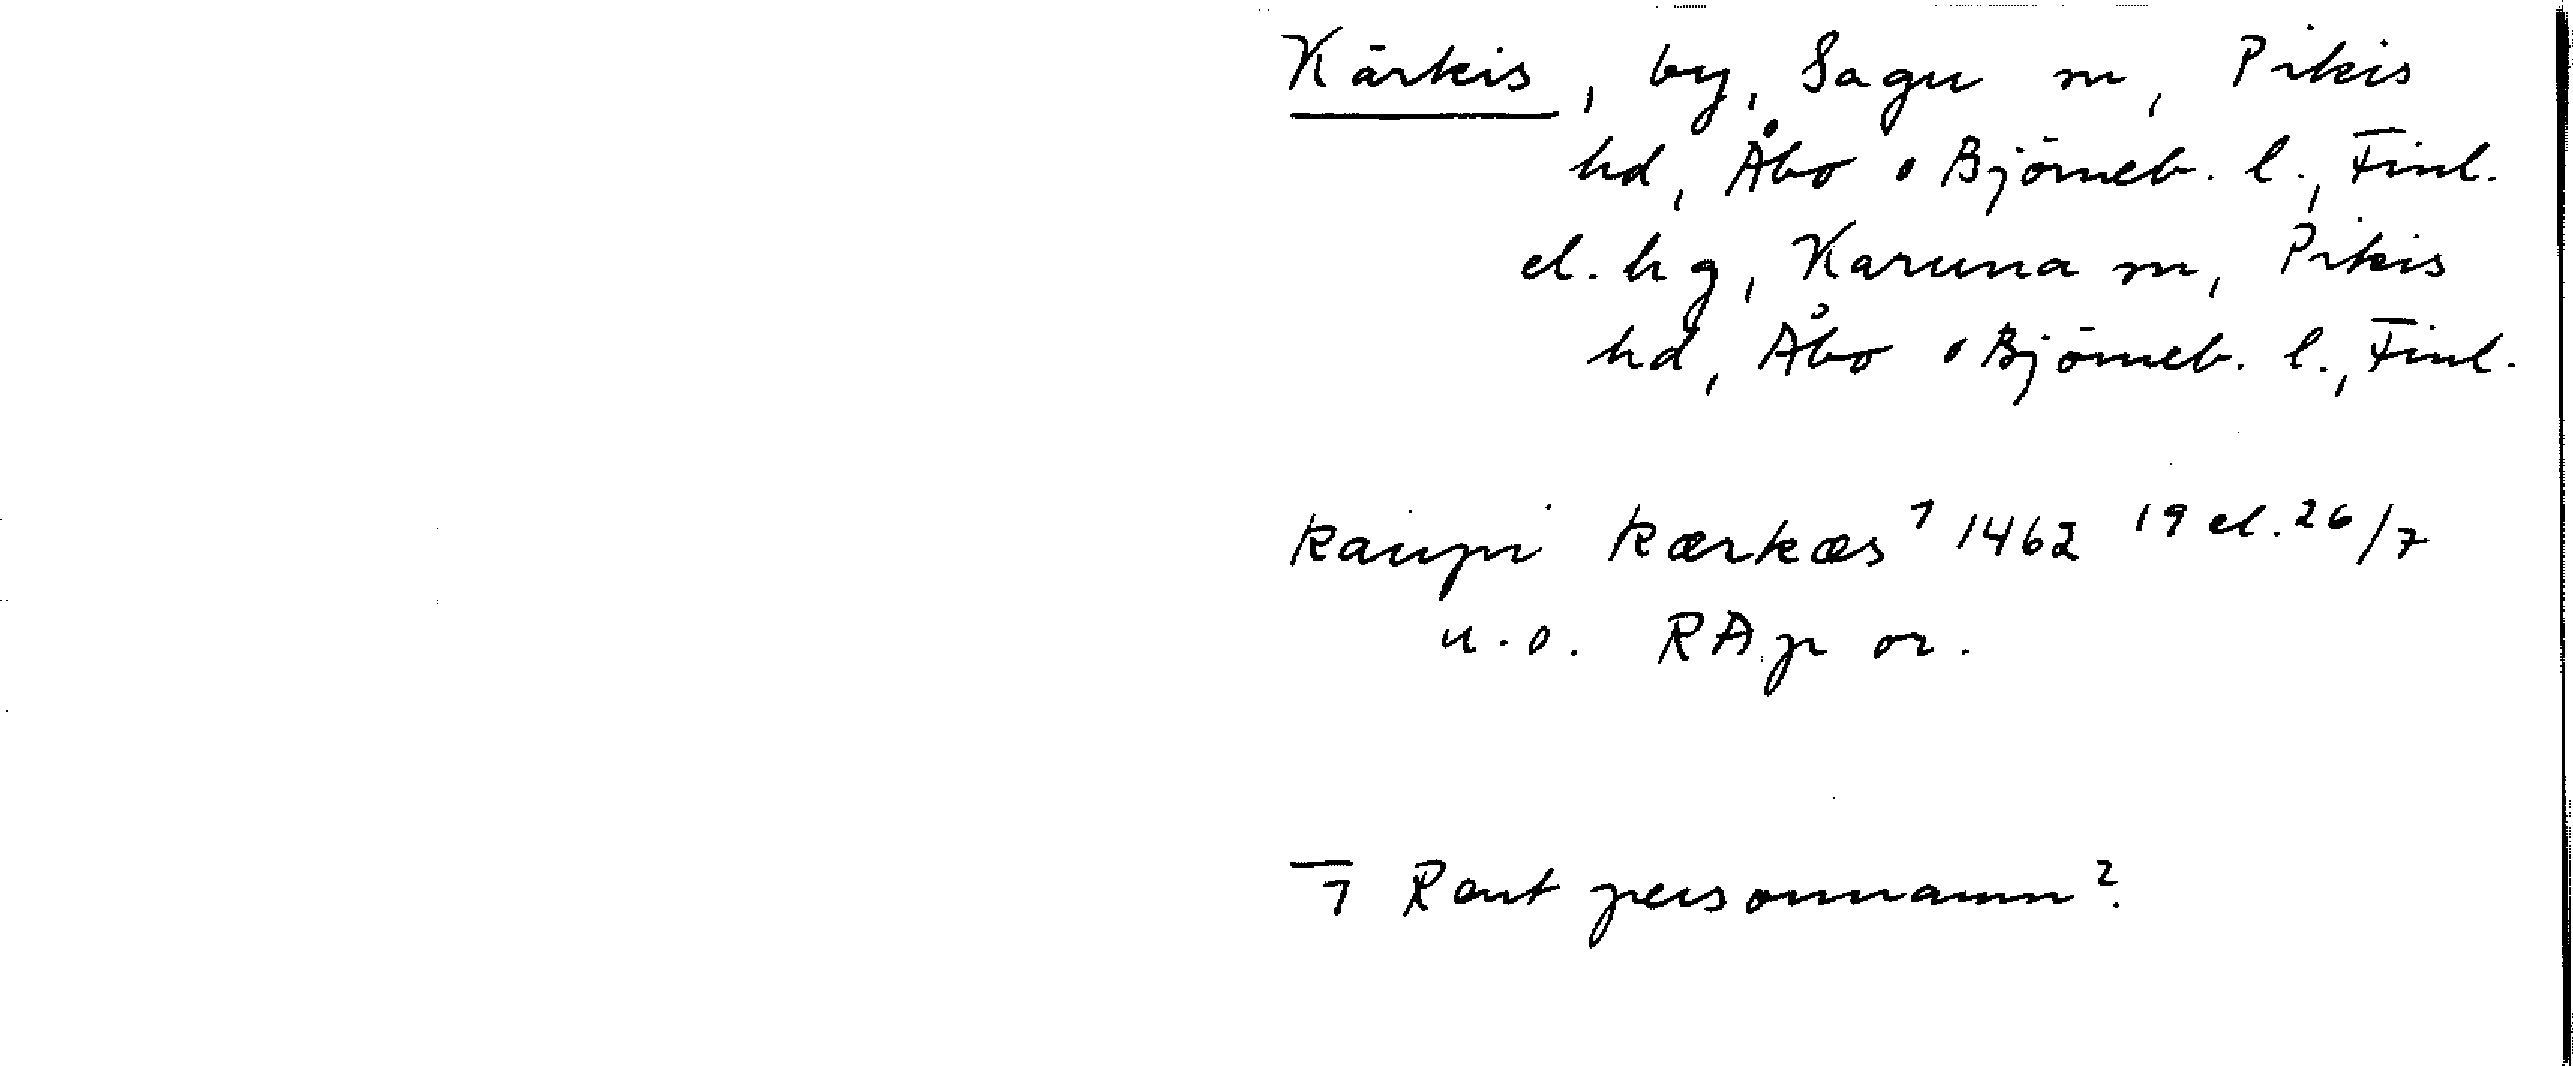 Kärkis, by, Sagu sn, Pikis
hd, Åbo o Björneb. l., Finl.
el. hg, Karuna sn, Pikis
hd, Åbo o Björneb. l., Finl.
kaupi kærkæs 1 1462 19 el. 26/7
u.o. RAp or.
1 Rent personnamn?